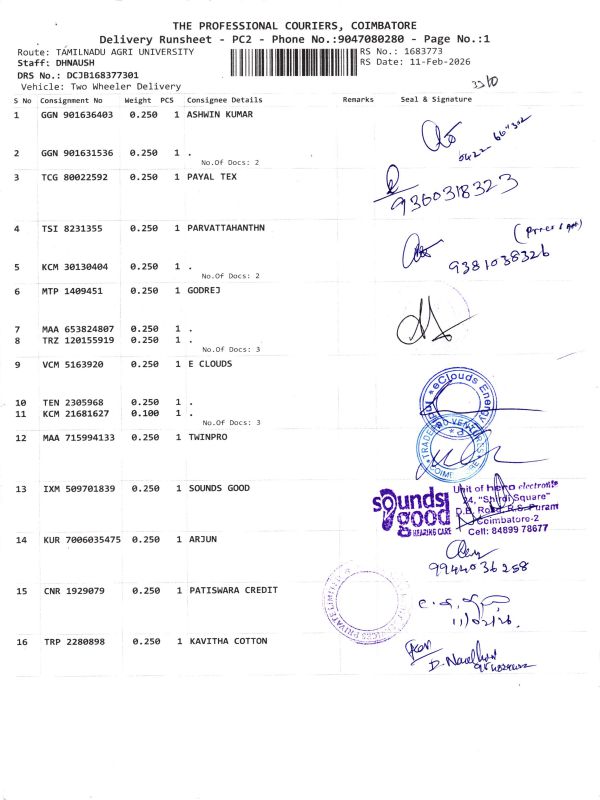 THE PROFESSIONAL COURIERS, COIMBATORE
Delivery Runsheet - PC2 - Phone No.:9047080280 - Page No.:1
Route: TAMILNADU AGRI UNIVERSITY
RS No.: 1683773
Staff: DHNAUSH
RS Date: 11-Feb-2026
DRS No.: DCJB168377301
Vehicle: Two Wheeler Delivery
S No Consignment No Weight PCS Consignee Details Remarks Seal & Signature
1 GGN 901636403 0.250 1 ASHWIN KUMAR
2 GGN 901631536 0.250 1 .
No.Of Docs: 2
3 TCG 80022592 0.250 1 PAYAL TEX
9360318323
4 TSI 8231355 0.250 1 PARVATTAHANTHN
9381038326
5 KCM 30130404 0.250 1 .
No.Of Docs: 2
6 MTP 1409451 0.250 1 GODREJ
7 MAA 653824807 0.250 1 .
8 TRZ 120155919 0.250 1 .
No.Of Docs: 3
9 VCM 5163920 0.250 1 E CLOUDS
eClouds Energy
10 TEN 2305968 0.250 1 .
11 KCM 21681627 0.100 1 .
No.Of Docs: 3
12 MAA 715994133 0.250 1 TWINPRO
13 IXM 509701839 0.250 1 SOUNDS GOOD
sounds good
HEARING CARE
Unit of hero electronic
24, "Shirdi Square"
D.B. Road, R.S. Puram
Coimbatore-2
Cell: 84899 78677
14 KUR 7006035475 0.250 1 ARJUN
9944036258
15 CNR 1929079 0.250 1 PATISWARA CREDIT
11/02/26
16 TRP 2280898 0.250 1 KAVITHA COTTON